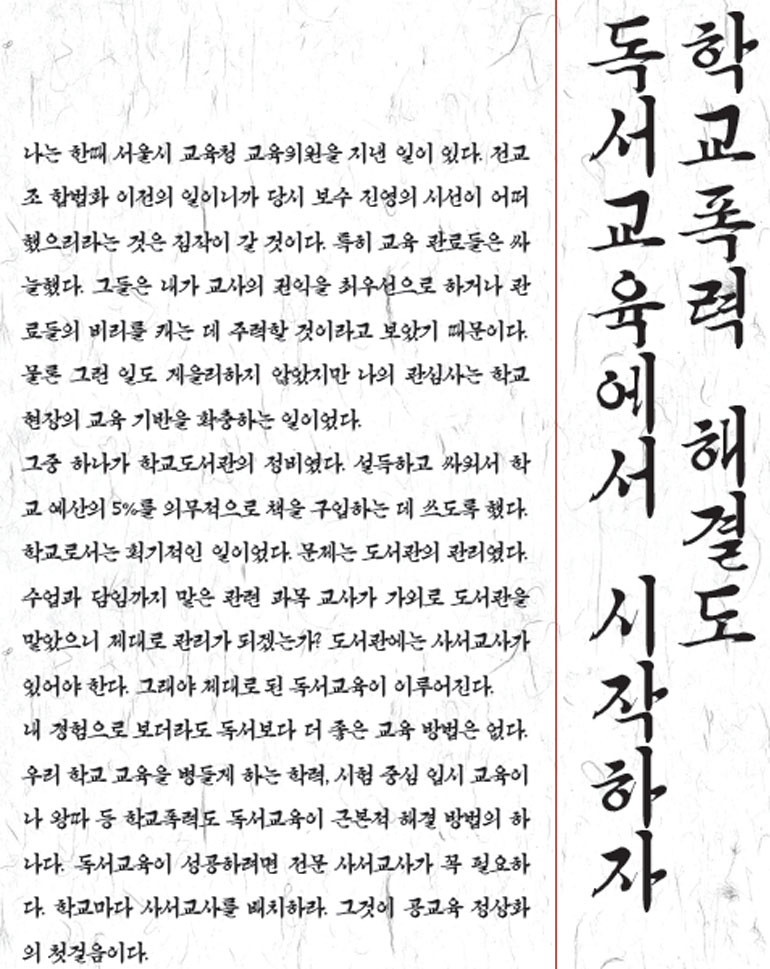 학교폭력 해결도
독서교육에서 시작하자
나는 한때 서울시 교육청 교육위원을 지낸 일이 있다. 전교
조 합법화 이전의 일이니까 당시 보수 진영의 시선이 어떠
했으리라는 것은 짐작이 갈 것이다. 특히 교육 관료들은 싸
늘했다. 그들은 내가 교사의 권익을 최우선으로 하거나 관
료들의 비리를 캐는 데 주력할 것이라고 보았기 때문이다.
물론 그런 일도 게을리하지 않았지만 나의 관심사는 학교
현장의 교육 기반을 확충하는 일이었다.
그중 하나가 학교도서관의 정비였다. 설득하고 싸워서 학
교 예산의 5%를 의무적으로 책을 구입하는 데 쓰도록 했다.
학교로서는 획기적인 일이었다. 문제는 도서관의 관리였다.
수업과 담임까지 맡은 관련 과목 교사가 가외로 도서관을
맡았으니 제대로 관리가 되겠는가? 도서관에는 사서교사가
있어야 한다. 그래야 제대로 된 독서교육이 이루어진다.
내 경험으로 보더라도 독서보다 더 좋은 교육 방법은 없다.
우리 학교 교육을 병들게 하는 학력, 시험 중심 입시 교육이
나 왕따 등 학교폭력도 독서교육이 근본적 해결 방법의 하
나다. 독서교육이 성공하려면 전문 사서교사가 꼭 필요하
다. 학교마다 사서교사를 배치하라. 그것이 공교육 정상화
의 첫걸음이다.